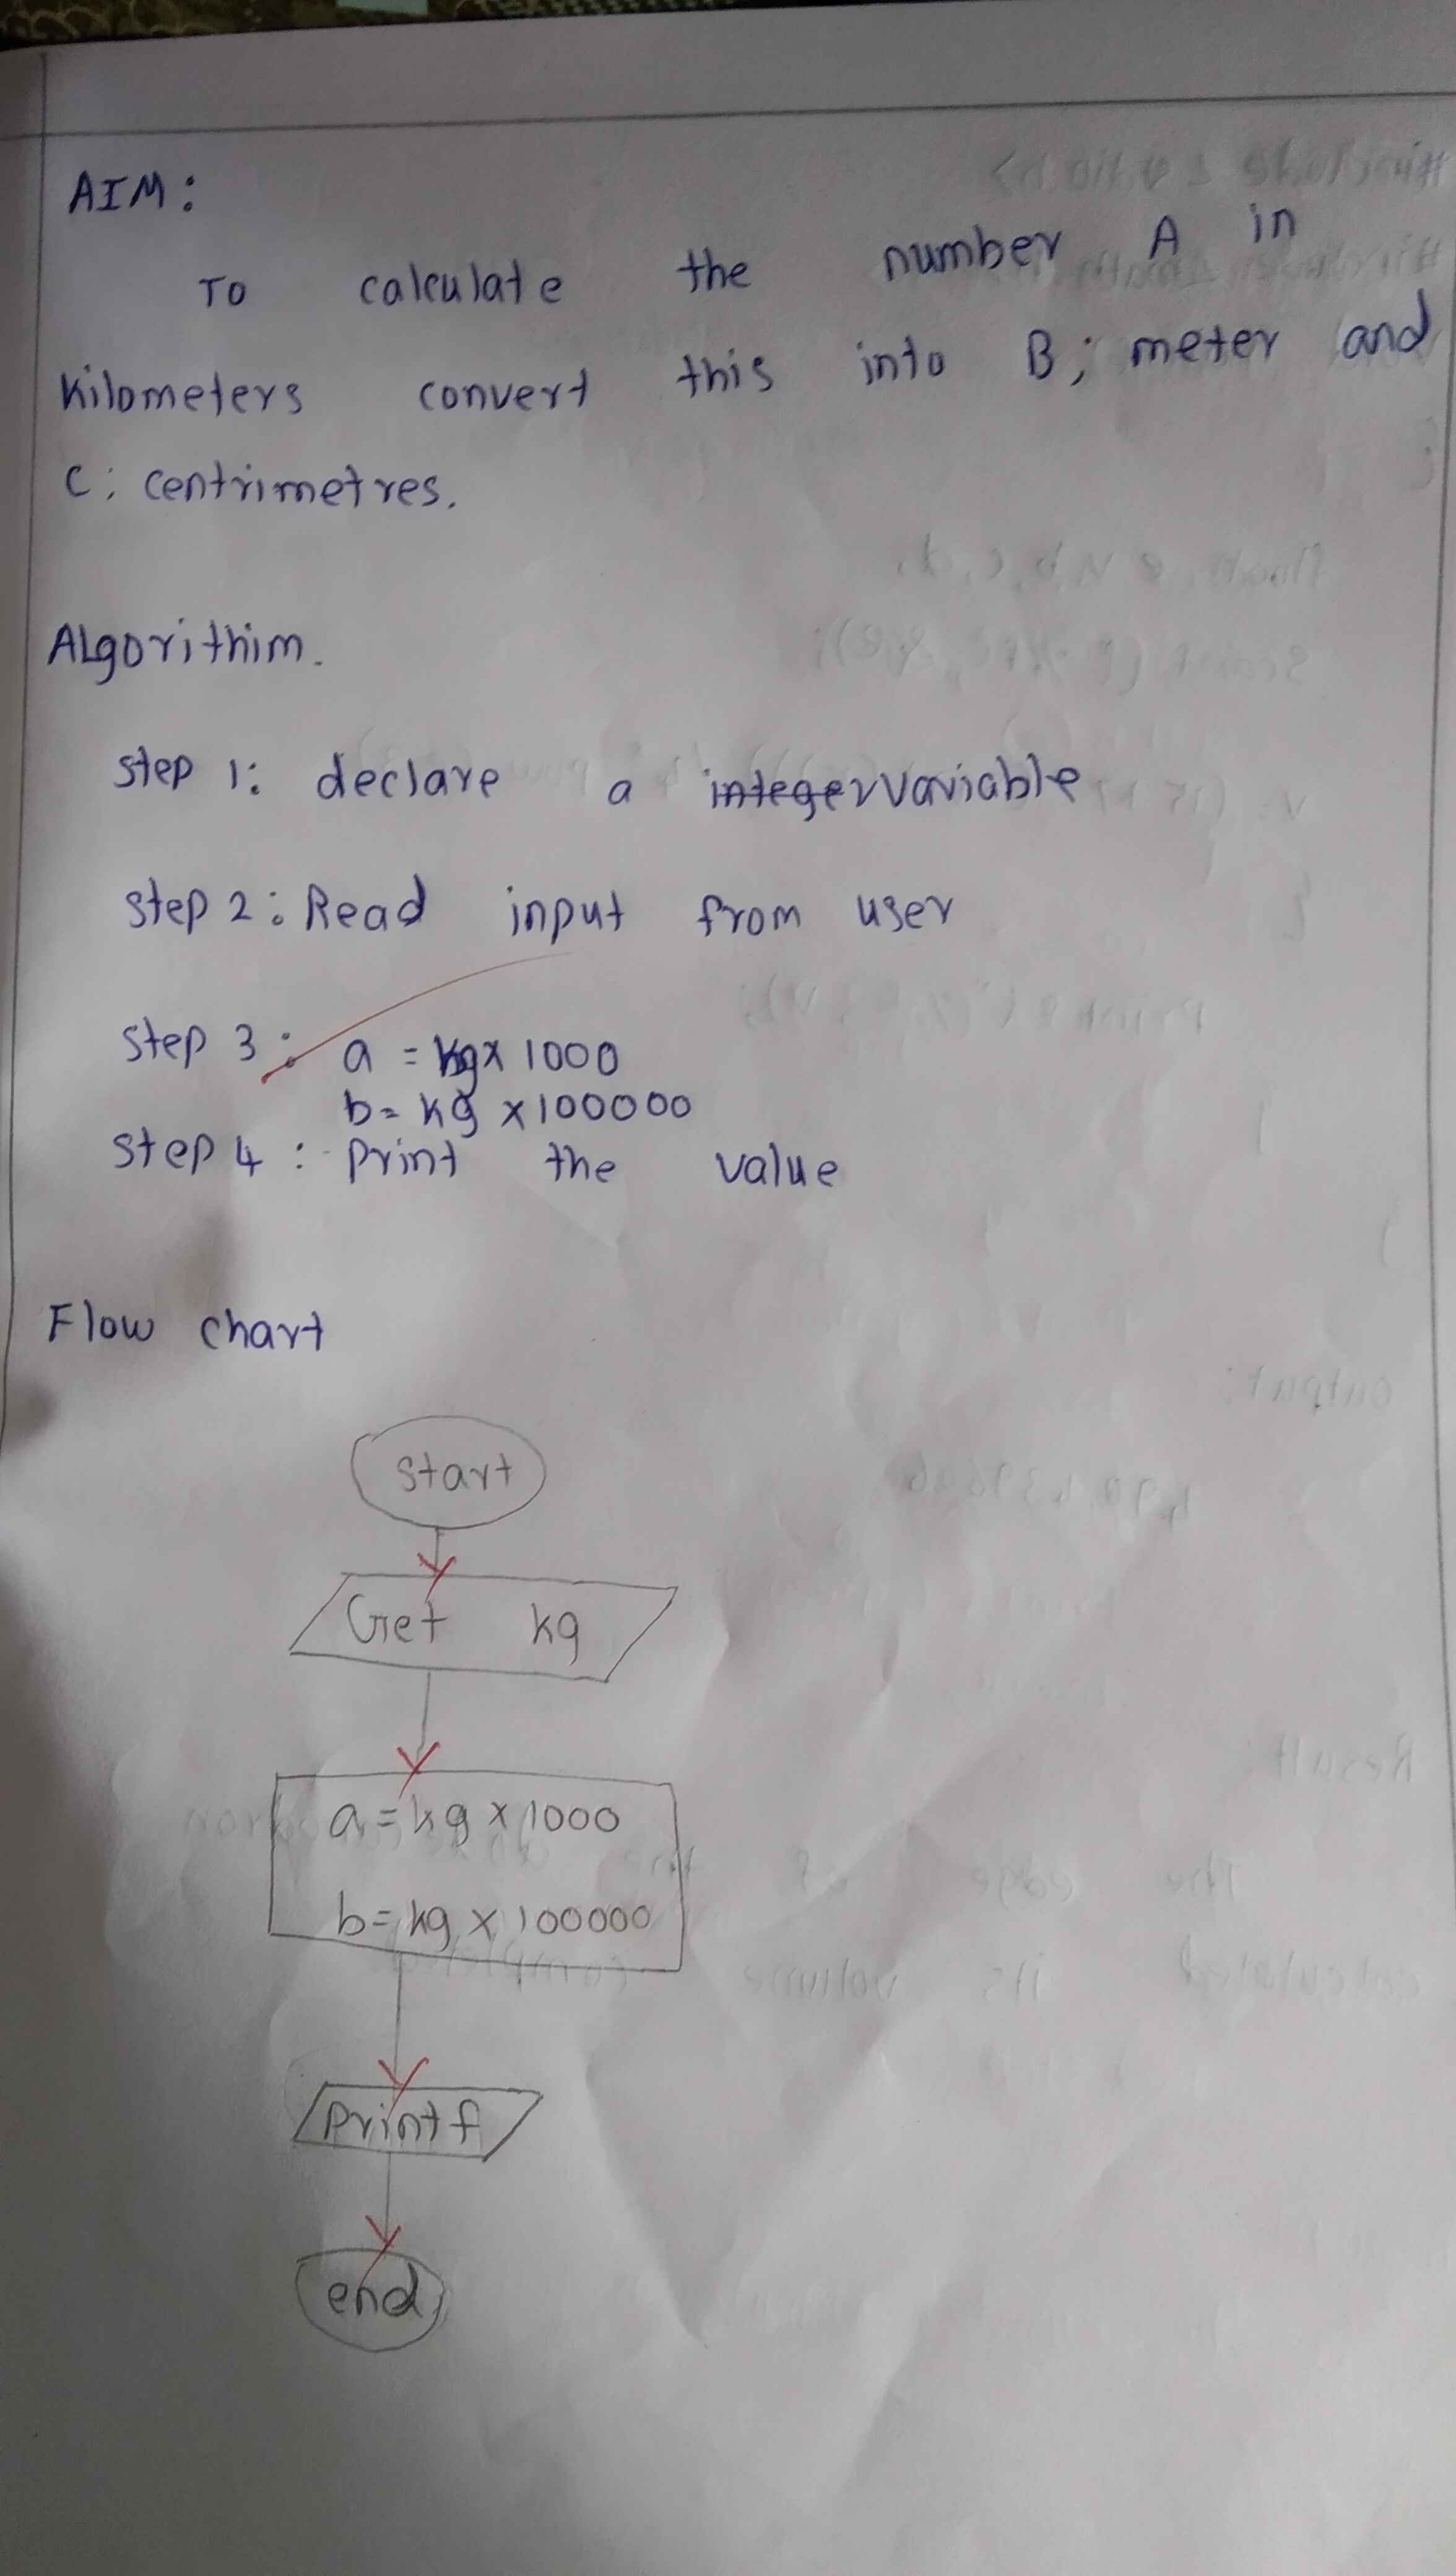 AIM:
To calculate the number A in
kilometers convert this into B; meter and
C: centrimetres.
Algorithim.
step 1: declare a integer variable
step 2: Read input from user
step 3: a = kg x 1000
b = kg x 100000
step 4: print the value
Flow chart
start
Get kg
a = kg x 1000
b = kg x 100000
printf
end